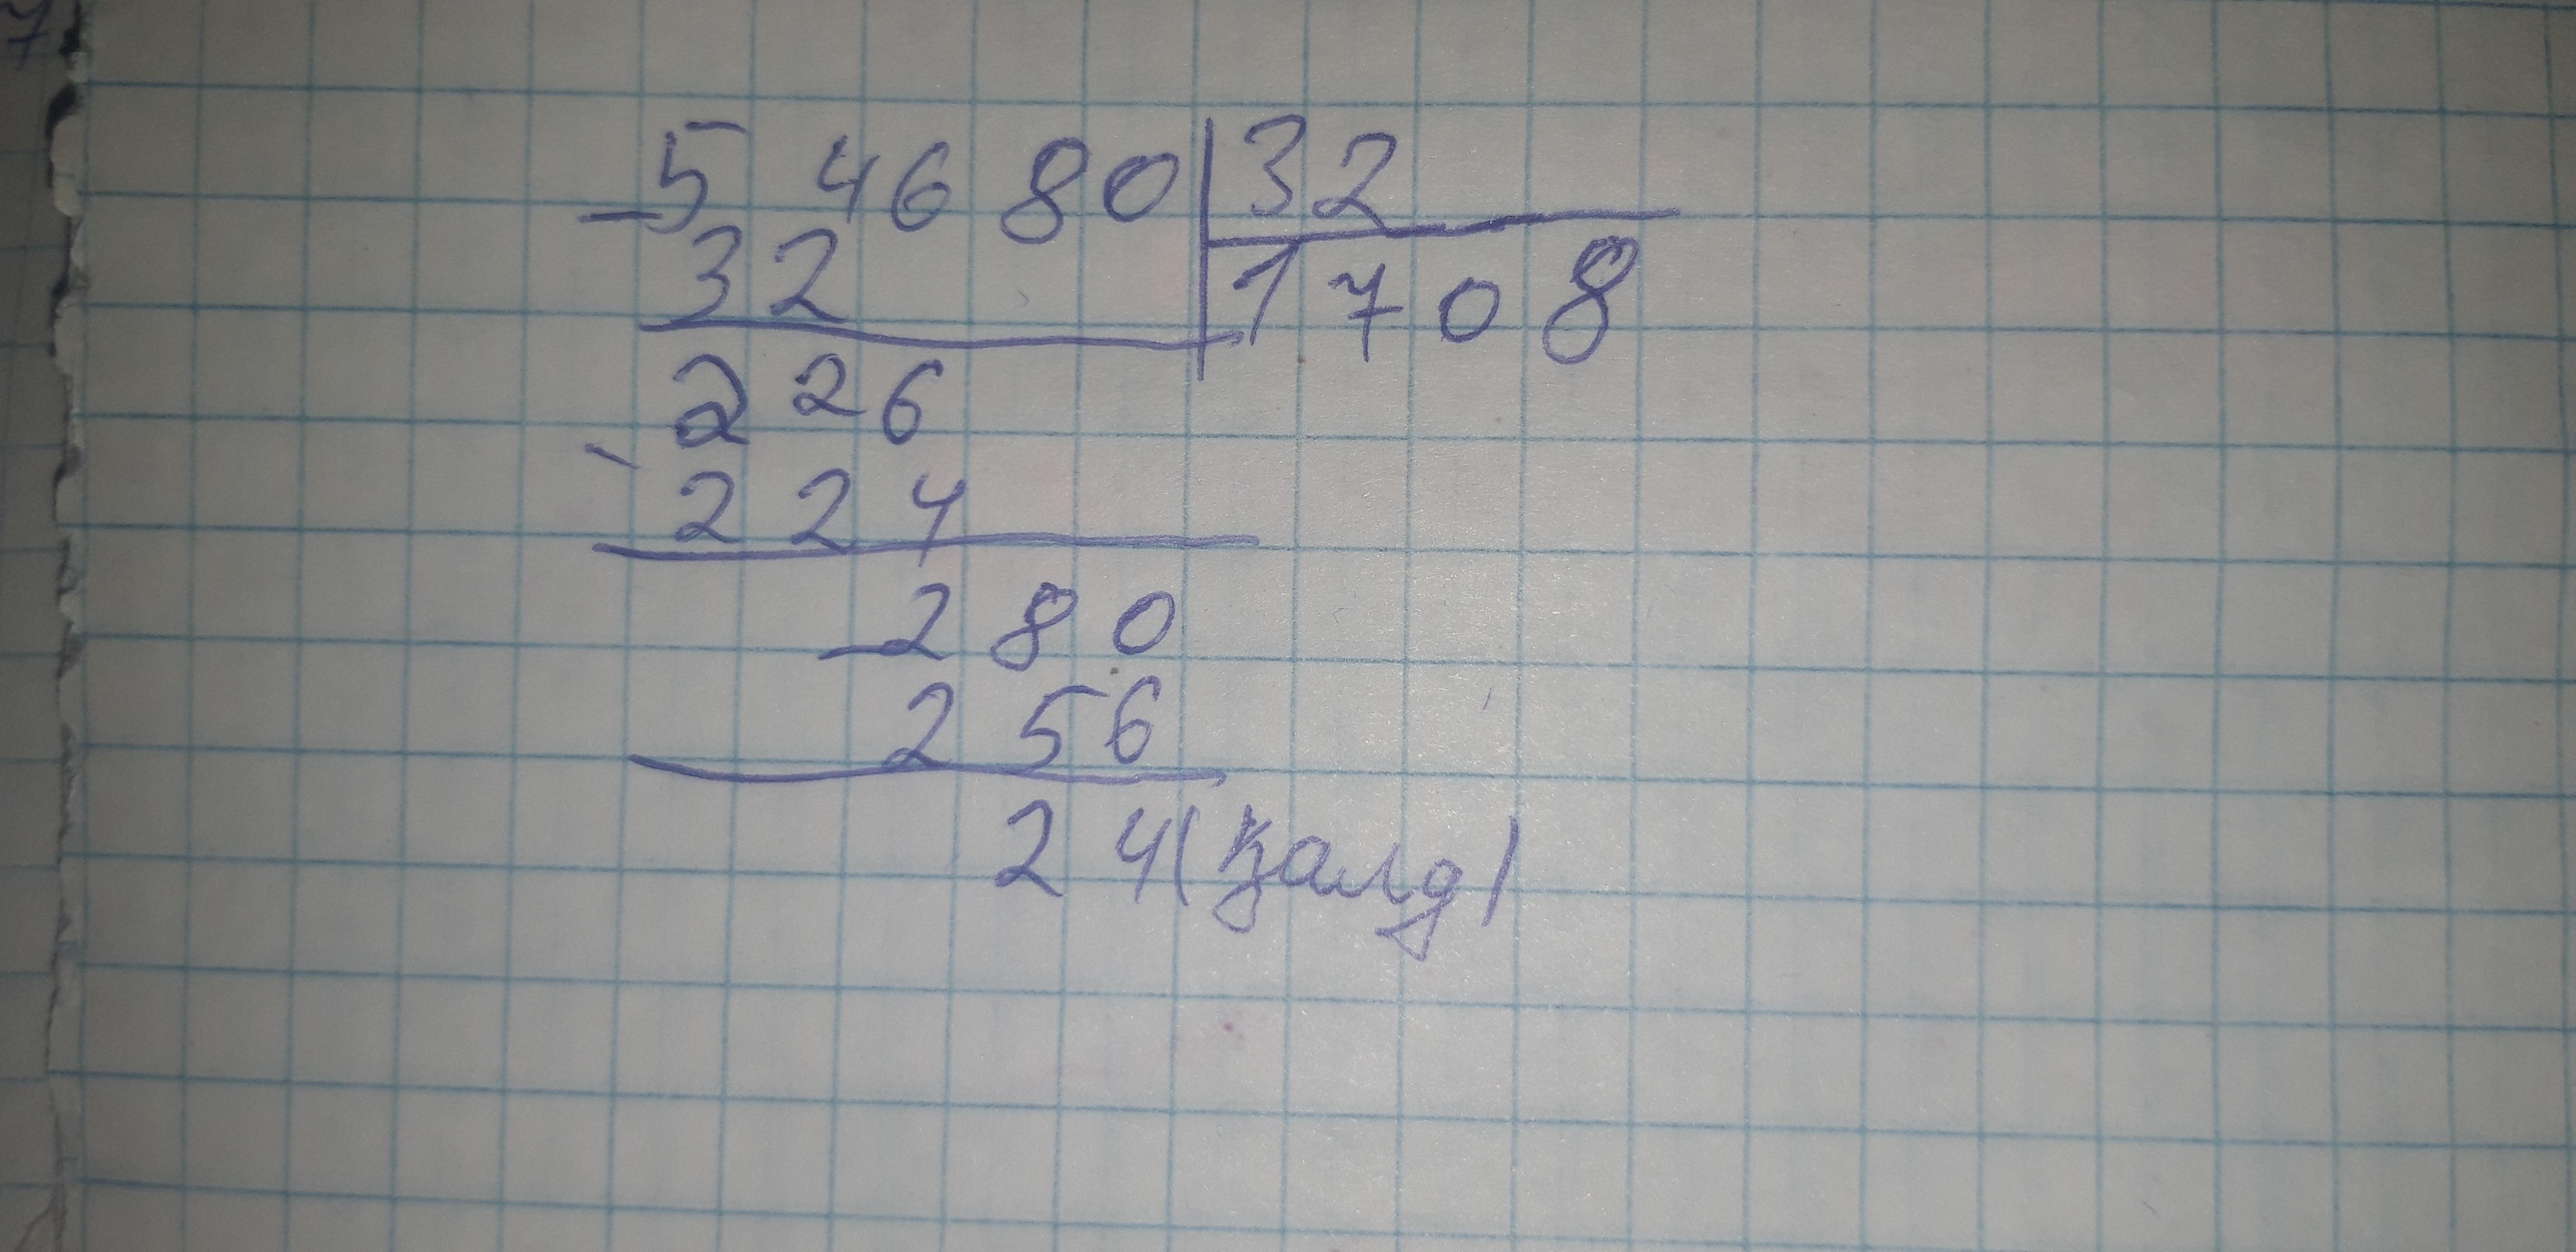 54680 32
32 1708
226
224
280
256
24(қалд)